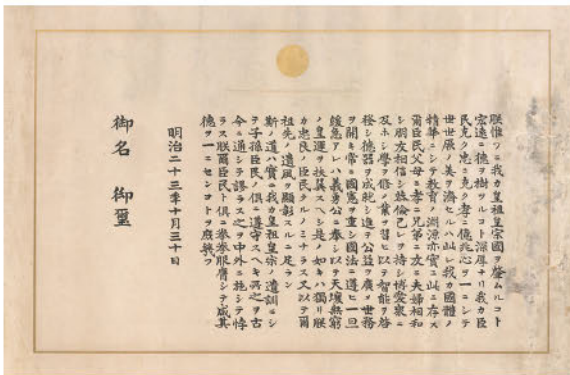 朕惟フニ我カ皇祖皇宗國ヲ肇ムルコト
宏遠ニ徳ヲ樹ツルコト深厚ナリ我カ臣
民克ク忠ニ克ク孝ニ億兆心ヲ一ニシテ
世世厥ノ美ヲ濟セルハ此レ我カ國體ノ
精華ニシテ教育ノ淵源亦實ニ此ニ存ス
爾臣民父母ニ孝ニ兄弟ニ友ニ夫婦相和
シ朋友相信シ恭儉己レヲ持シ博愛衆ニ
及ホシ學ヲ修メ業ヲ習ヒ以テ智能ヲ啓
發シ徳器ヲ成就シ進テ公益ヲ廣メ世務
ヲ開キ常ニ國憲ヲ重シ國法ニ遵ヒ一旦
緩急アレハ義勇公ニ奉シ以テ天壤無窮
ノ皇運ヲ扶翼スヘシ是ノ如キハ獨リ朕
カ忠良ノ臣民タルノミナラス又以テ爾
祖先ノ遺風ヲ顯彰スルニ足ラン
斯ノ道ハ實ニ我カ皇祖皇宗ノ遺訓ニシ
テ子孫臣民ノ倶ニ遵守スヘキ所之ヲ古
今ニ通シテ謬ラス之ヲ中外ニ施シテ悖
ラス朕爾臣民ト倶ニ拳拳服膺シテ咸其
徳ヲ一ニセンコトヲ庶幾フ
明治二十三年十月三十日
御名 御璽